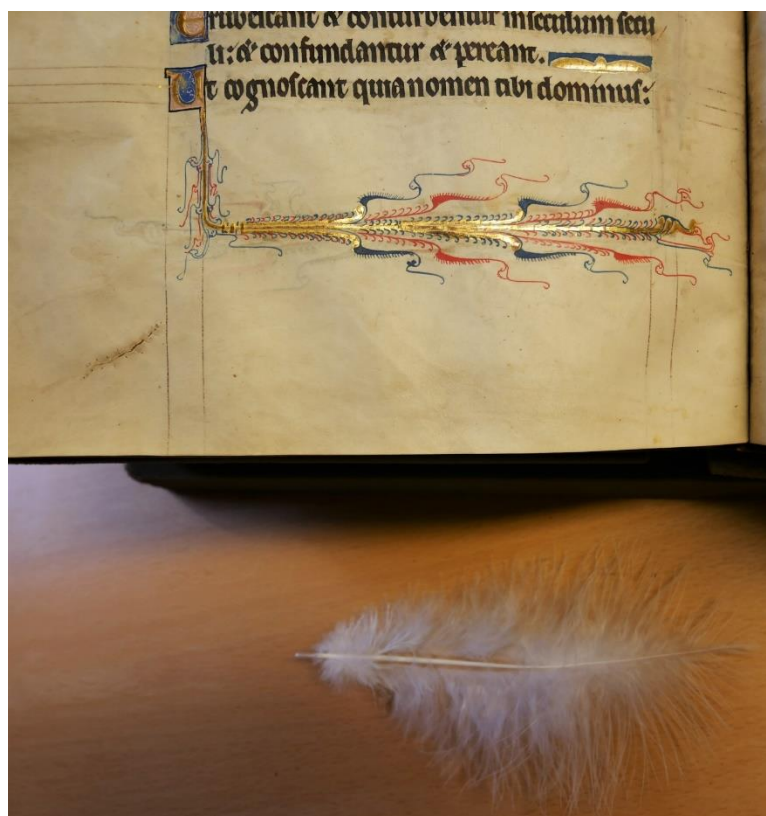 Erubescant & conturbentur inseculum secu
li: & confundantur & pereant.
Et cognoscant quia nomen tibi dominus: